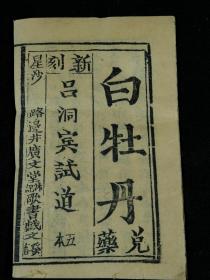 新刻
白牡丹
兑藥
吕洞宾試道
五本
星沙
路邊井廣文堂歌書戲文發